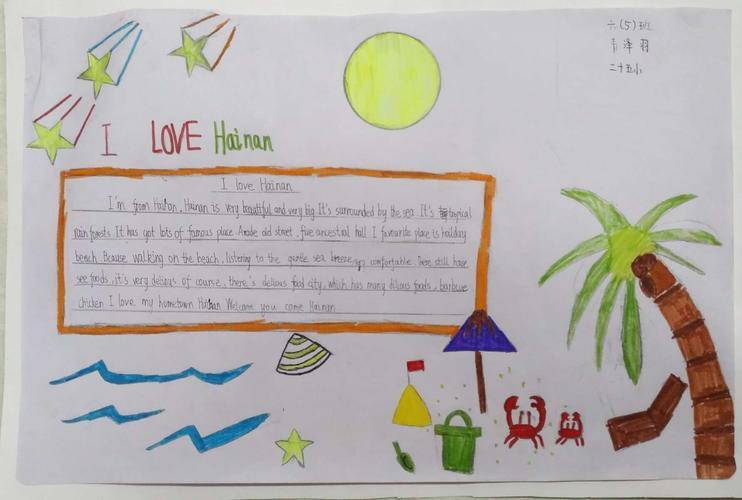 六(5)班
二十五小
I LOVE Hainan
I love Hainan
I'm from Hainan. Hainan is very beautiful and very big It's surrounded by the sea. It's tropical
rain forests It has got lots of famous place Arcade old street, five ancestral hall I favourite place is holiday
beach. Bcause walking on the beach, listening to the gentle sea breeze, comfortable. There still have
see foods, it's very delicus. of course, there's delicus food city, which has many dilicus foods, barbcue
chicken I love my hometown Hainan Welcome you come Hainan